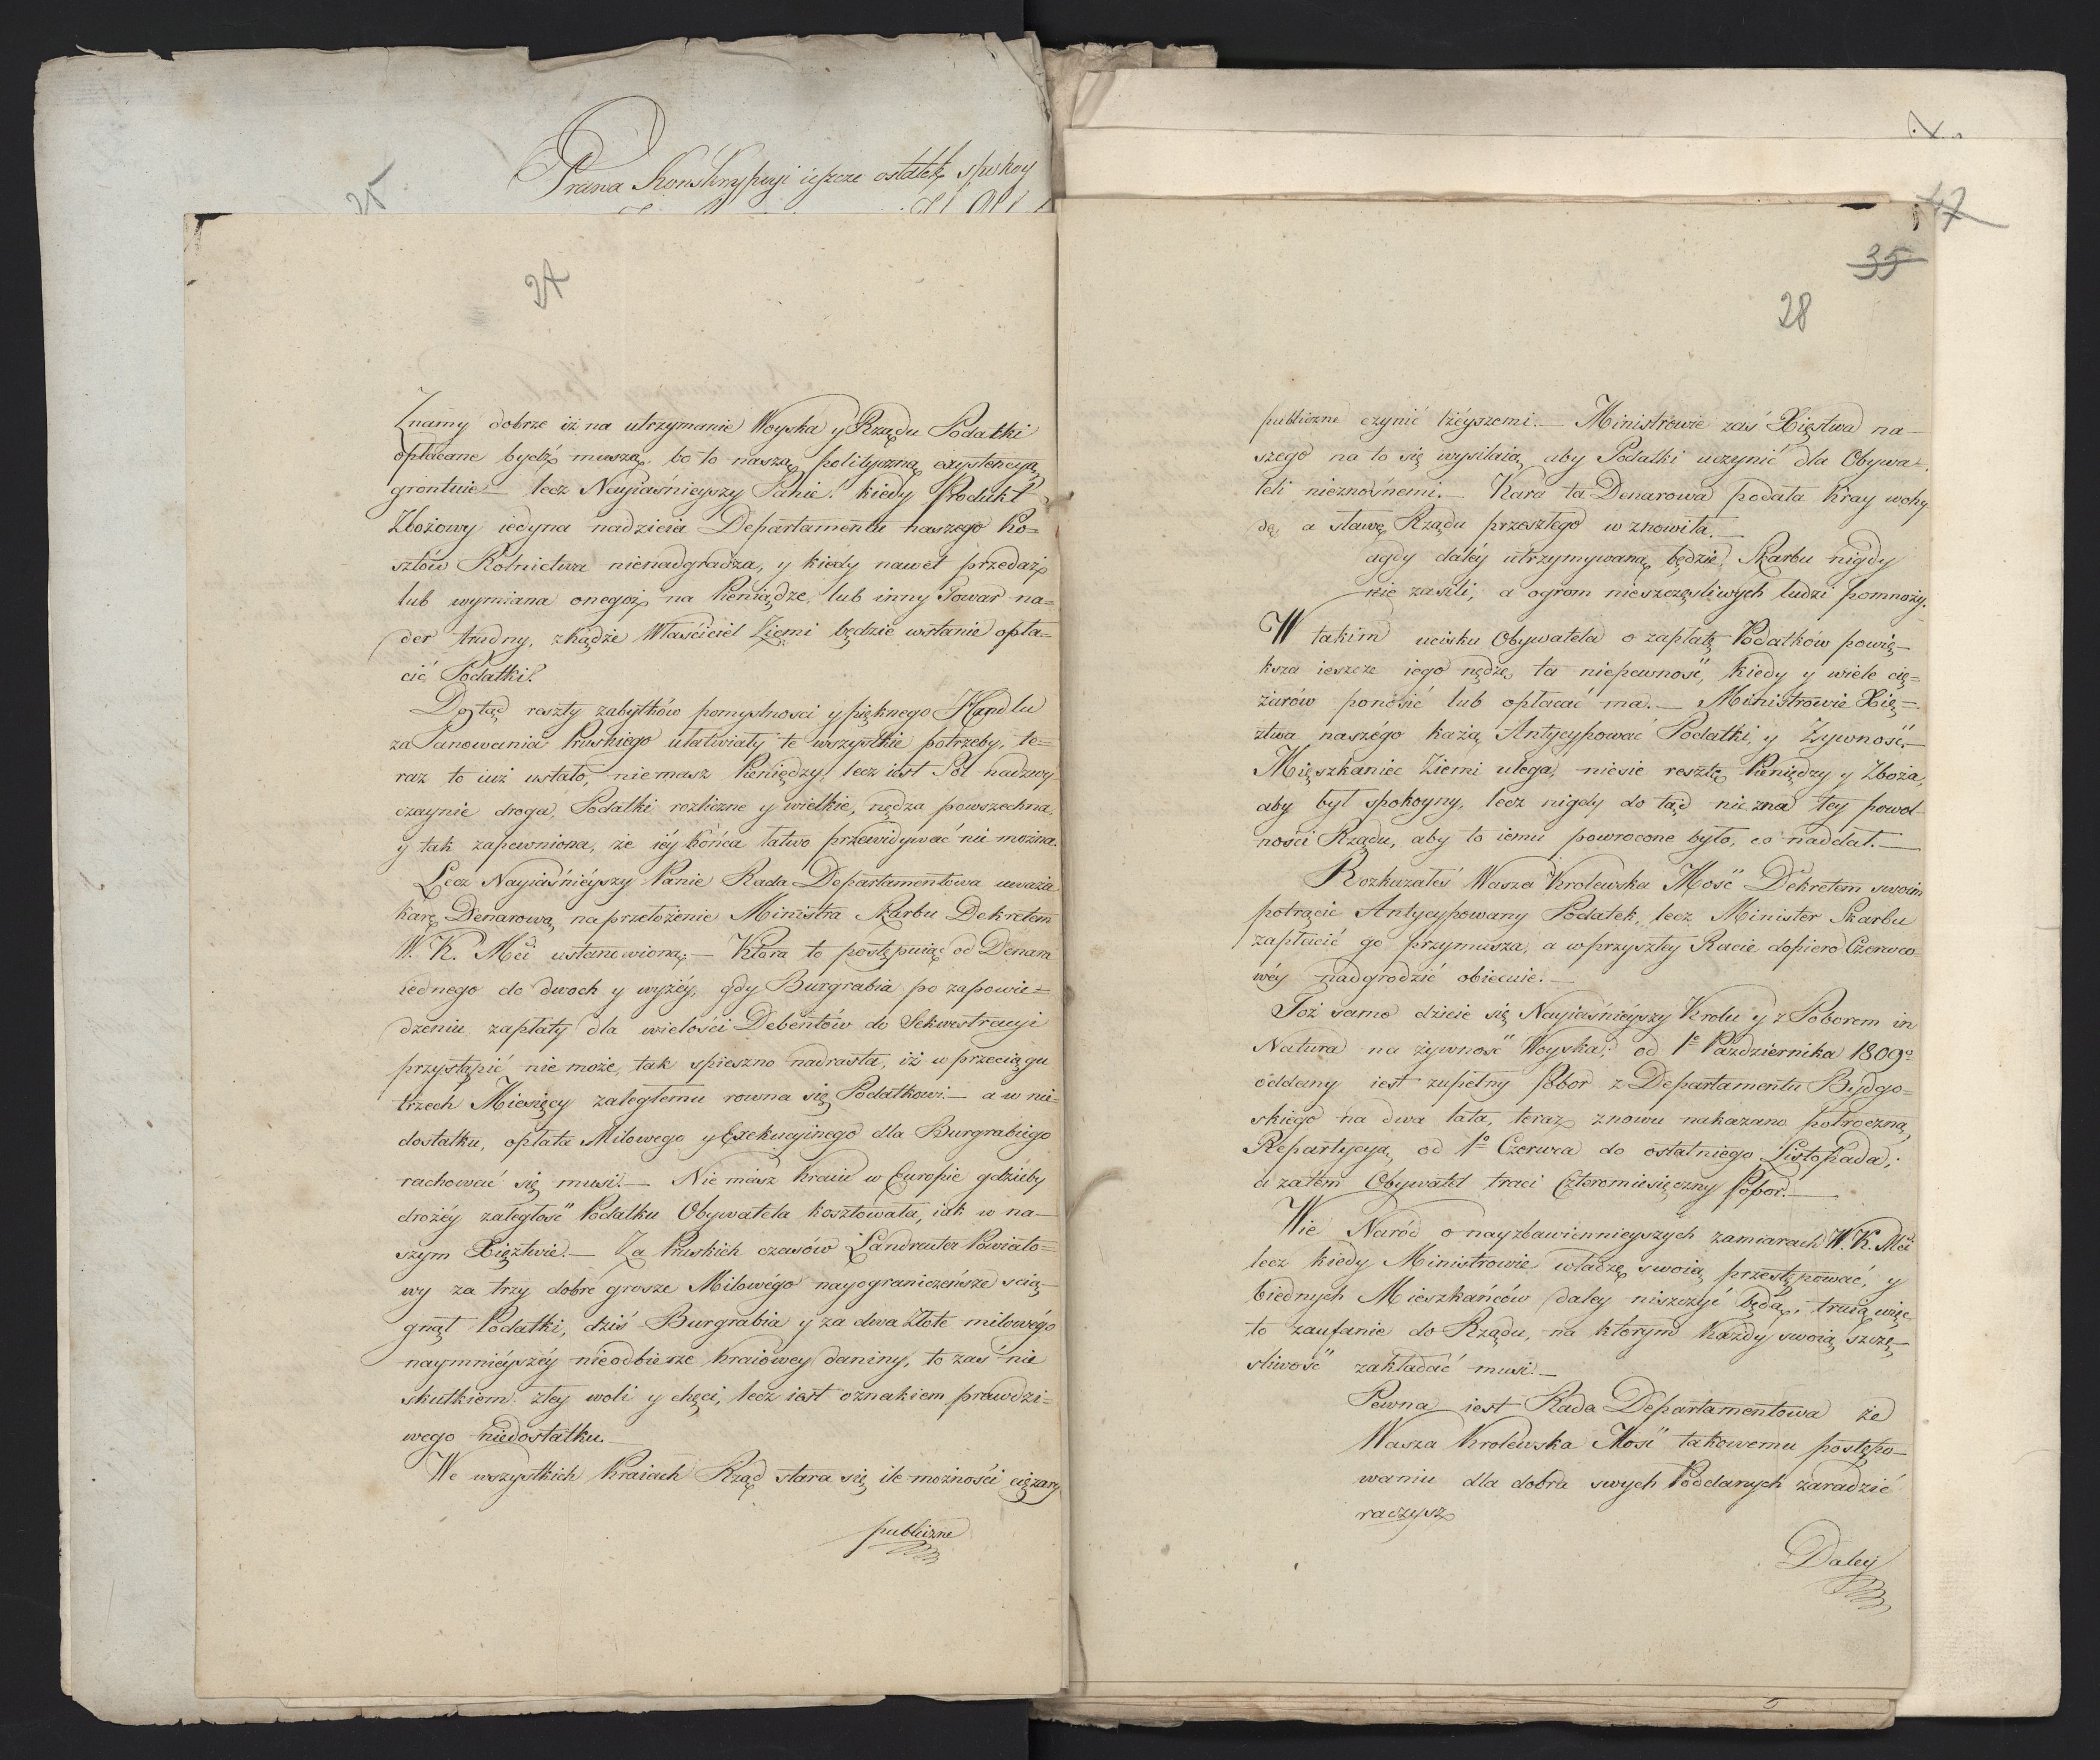 25
Prawa Konskrypcyi ieszcze ostatek spokoy
27
Znamy dobrze iż na utrzymanie Woyska y Rządu Podatki
opłacane bydź muszą, bo to naszą polityczną exystencyą
grontuie – lecz Nayiaśnieyszy Panie! kiedy Produkt
Zbożowy iedyna nadzieia Departamentu naszego ko=
sztów Rolnictwa nienadgradza, y kiedy nawet przedaż
lub wymiana onegoż na Pieniądze, lub inny Towar na=
der trudny, zkądże Właściciel Ziemi będzie wstanie opła=
cić Podatki?
Dotąd reszty zabytków pomyslnosci y pięknego Handlu
za Panowania Pruskiego ułatwiały te wszystkie potrzeby, te=
raz to iuż ustało, niemasz Pieniędzy, lecz iest Sol nadzwy
czaynie droga, Podatki rozliczne y wielkie, nędza powszechna,
y tak zapewniona, że iéy końca łatwo przewidywać nie można.
Lecz Nayiaśniéyszy Panie Rada Departamentowa uważa
karę Denarową, na przełożenie Ministra Skarbu Dekretem
W. K. Mći ustanowioną; – Która to postępuiąc od Denara
iednego do dwoch y wyżéy, gdy Burgrabia po zapowie=
dzeniu zapłaty dla wielości Debentów do Sekwestracyi
przystąpić nie może, tak spieszno nadrasta, iż w przeciągu
trzech Miesięcy zaległemu rowna się Podatkowi – a w nie=
dostatku, opłata Milowego y Exekucyinego dla Burgrabiego
rachować się musi. – Nie masz kraiu w Europie gdzieby
drożéy zaległość Podatku Obywatela kosztowała, iak w na–
szym Xięztwie. – Za Pruskich czasów Landreuter Powiato=
wy za trzy dobre grosze Milowégo nayograniczeńsze scią–
gnął Podatki, dziś Burgrabia y za dwa Złote milowégo
naymniéyszéy nieodbierze kraiowey daniny, to zaś nie
skutkiem złey woli y chęci, lecz iest oznakiem prawdzi=
wego niedostatku. –
We wszystkich Kraiach Rząd stara się ile możności ciężary
publiczne
47
35
28
publiczne czynić lżéyszemi. – Ministrowie zaś Xięstwa na–
szego na to się wysilaią, aby Podatki uczynić dla Obywa–
teli nieznośnemi. – Kara ta Denarowa podała kray w ohy
dę, a sławę Rządu przeszłego wznowiła. –
a gdy daléy utrzymywaną będzie, Skarbu nigdy
nie zasili, a ogrom nieszczęsliwych ludzi pomnoży.
W takim ucisku Obywatela o zapłatę Podatków powię–
ksza ieszcze iego nędzę ta niepewność, kiedy y wiele cię=
żarów ponosić lub opłacać ma. – Ministrowie Xię–
ztwa naszégo każą Antycypować Podatki, y Zywność. –
Mięszkaniec Ziemi ulega, niesie resztę Pieniędzy y Zboża,
aby był spokoyny, lecz nigdy do tąd nie zna tey powol
ności Rządu, aby to iemu powrocone było, co naddał. –
Rozkazałeś Wasza Krolewska Mość Dekretem swoim
potrącić Antycypowany Podatek, lecz Minister Skarbu
zapłacić go przymusza, a w przyszłey Racie dopiero Czerwco–
wéy nadgrodzić obiecuie. –
Toż samo dzieie się Nayiaśniéyszy Krolu y z Poborem in
Natura na żywność Woyska; od 1º Października 1809º
oddany iest zupełny Pobor z Departamentu Bydgo=
skiego na dwa lata, teraz znowu nakazano połroczną
Repartycyą od 1º Czerwca do ostatniego Listopada;
a zatém Obywatel traci Czteromiesięczny Pobor. –
Wie Naród o nayzbawiennieyszych zamiarach W. K. Mći
lecz kiedy Ministrowie władzę swoią przestępować, y
biednych Mieszkańców daley niszczyć będą, trucą więc
to zaufanie do Rządu, na ktorym każdy swoią szczę–
śliwość zakładać musi. –
Pewna iest Rada Departamentowa że
Wasza Krolewska Mość takowemu postępo–
waniu dla dobra swych Poddanych zaradzić
raczysz
Daley